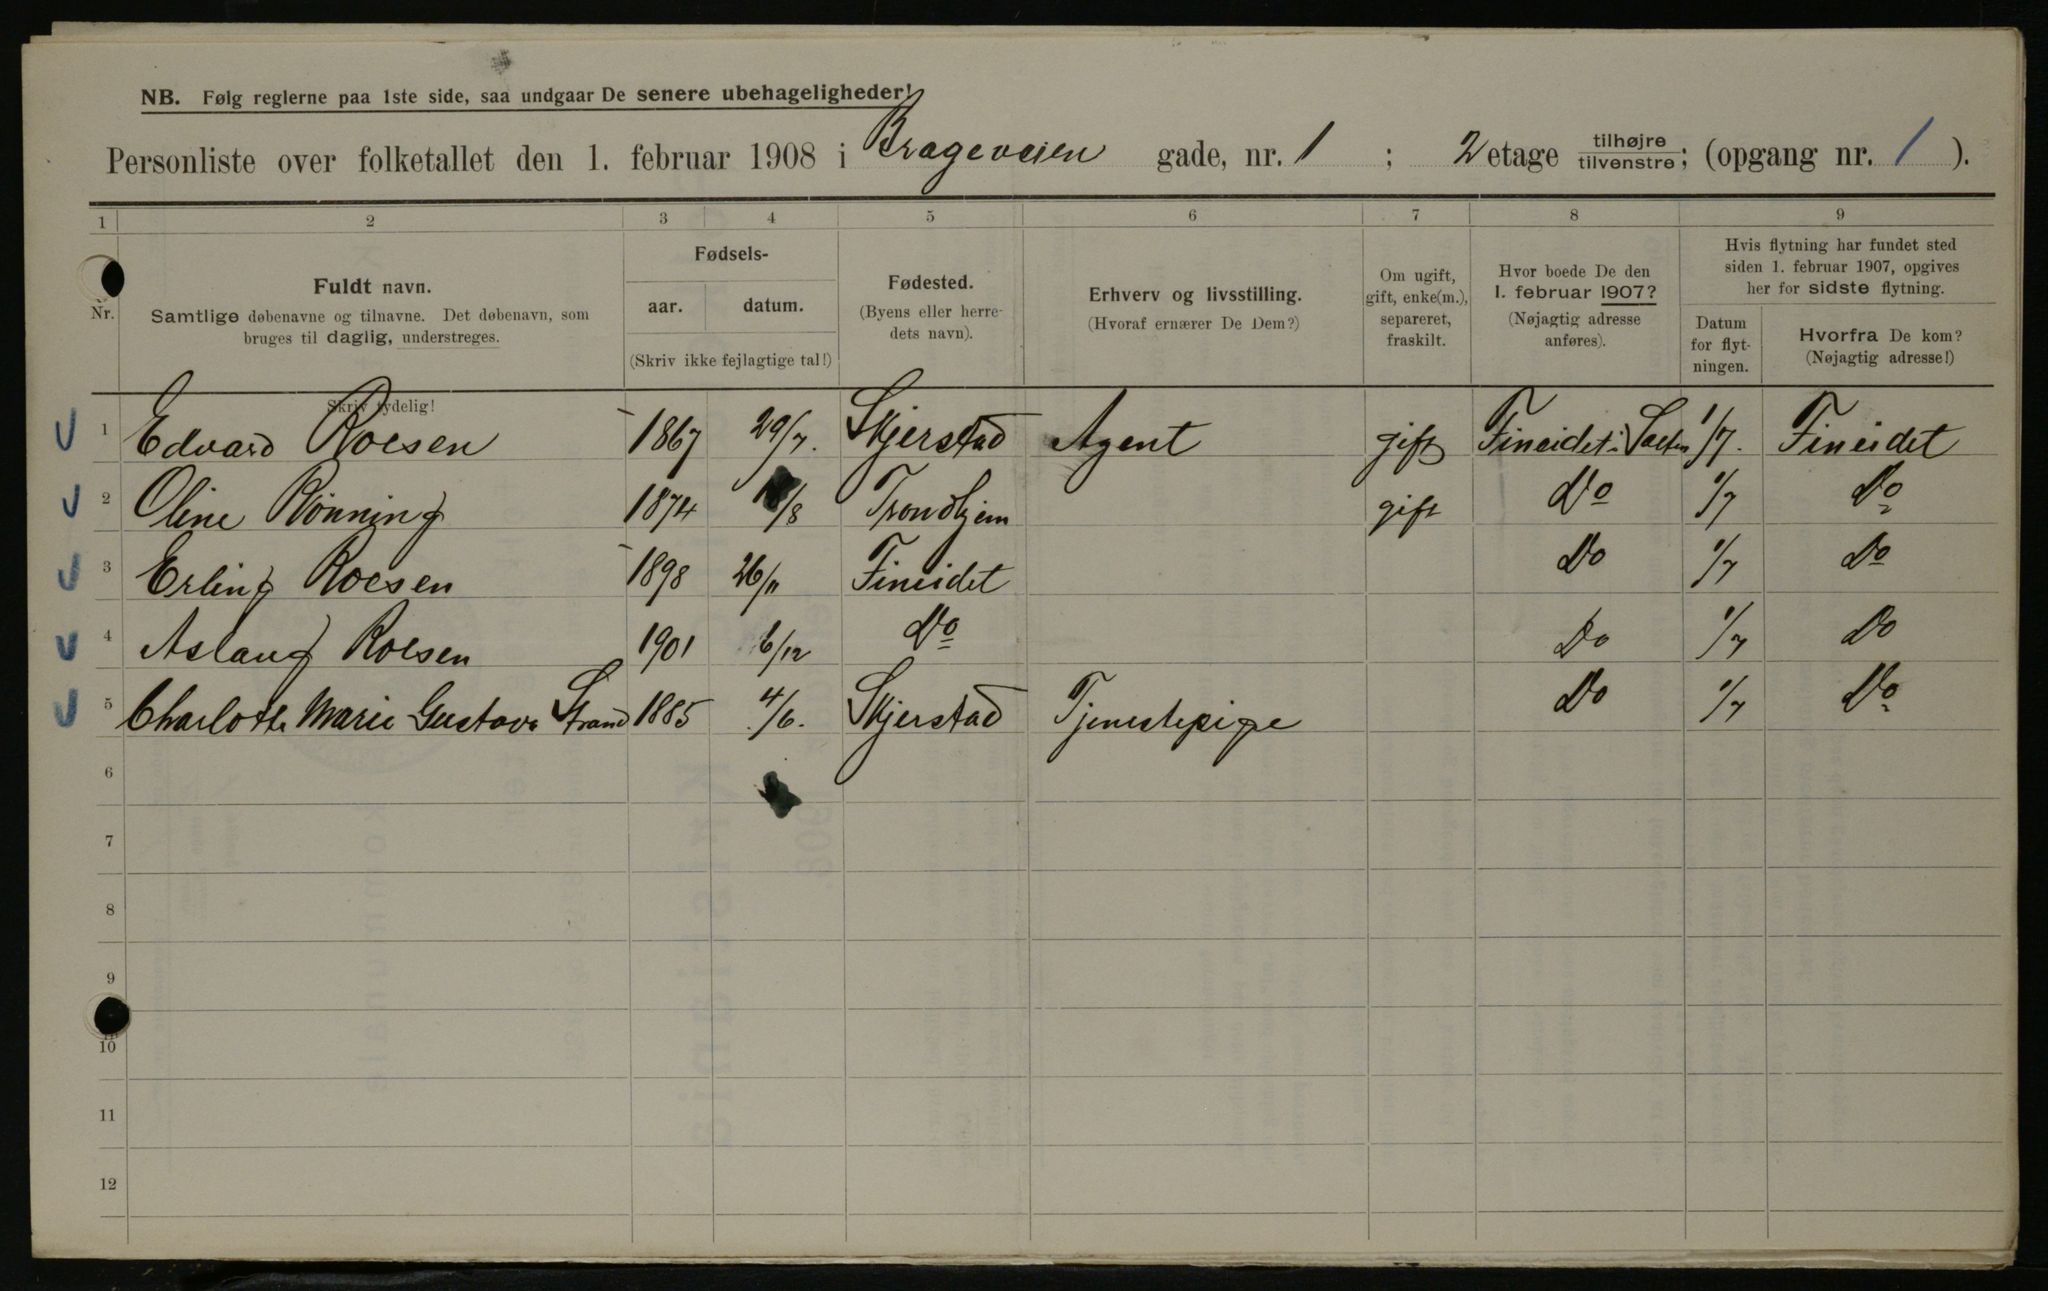 NB. Følg reglerne paa 1ste side, saa undgaar De senere ubehageligheder!
Personliste over folketallet den 1. februar 1908 i Brageveien gade, nr. 1 ; 2 etage tilhøjre tilvenstre; (opgang nr. 1 ).
1 2 3 4 5 6 7 8 9
Nr.
Fuldt navn.
Samtlige døbenavne og tilnavne. Det døbenavn, som
bruges til daglig, understreges.
Fødsels-
aar. datum.
(Skriv ikke fejlagtige tal!)
Fødested.
(Byens eller herre-
dets navn).
Erhverv og livsstilling.
(Hvoraf ernærer De Dem?)
Om ugift,
gift, enke(m.),
separeret,
fraskilt.
Hvor boede De den
1. februar 1907?
(Nøjagtig adresse
anføres).
Hvis flytning har fundet sted
siden 1. februar 1907, opgives
her for sidste flytning.
Datum
for flyt-
ningen.
Hvorfra De kom?
(Nøjagtig adresse!)
Skriv tydelig!
1 Edvard Roesen 1867 29/7. Skjerstad Agent gift Fineidet i Salten 1/7. Fineidet
2 Oline Rønning 1874 /8 Trondhjem gift Do 1/7 Do
3 Erling Roesen 1898 26/11 Fineidet Do 1/7 Do
4 Aslaug Roesen 1901 6/12 Do Do 1/7 Do
5 Charlotte Marie Gustava Strand 1885 4/6. Skjerstad Tjenestepige Do 1/7 Do
6
7
8
9
10
11
12